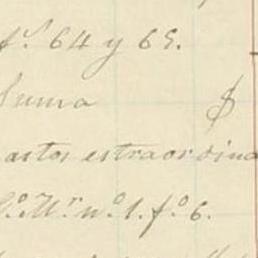 fs. 64 y 65.
Suma $
astos estraordina
Lo. Mr. no. 1. fo. 6.